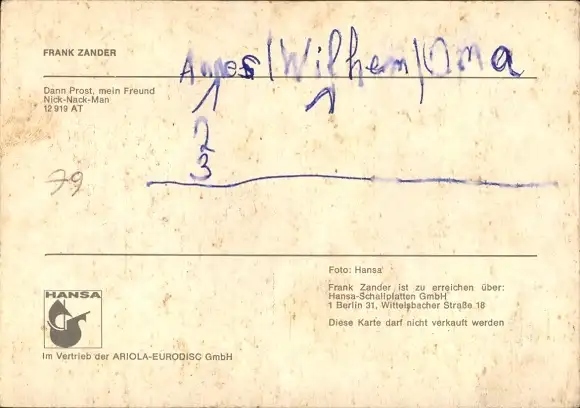 FRANK ZANDER
Agnes/Wilhem/Oma
Dann Prost, mein Freund
Nick-Nack-Man
12 919 AT
2
3
79
Foto: Hansa
Frank Zander ist zu erreichen über:
Hansa-Schallplatten GmbH
1 Berlin 31, Wittelsbacher Straße 18
Diese Karte darf nicht verkauft werden
HANSA
Im Vertrieb der ARIOLA-EURODISC GmbH